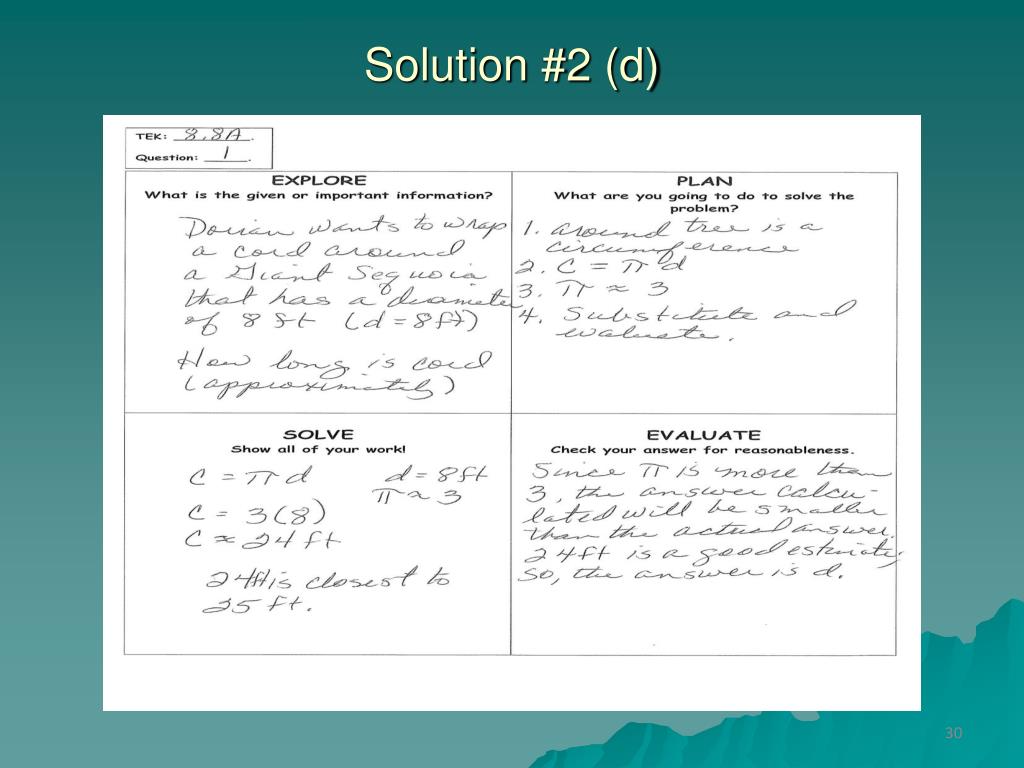 Solution #2 (d)
TEK: 8.8A.
Question: 1.
EXPLORE
What is the given or important information?
Dorian wants to wrap
a cord around
a Giant Sequoia
that has a diameter
of 8 ft (d = 8 ft)
How long is cord
(approximately)
PLAN
What are you going to do to solve the
problem?
1. around tree is a
circumference
2. C = π d
3. π ≈ 3
4. Substitute and
evaluate.
SOLVE
Show all of your work!
C = π d d = 8 ft
π ≈ 3
C = 3(8)
C ≈ 24 ft
24 ft is closest to
25 ft.
EVALUATE
Check your answer for reasonableness.
Since π is more than
3, the answer calcu-
lated will be smaller
than the actual answer.
24 ft is a good estimate,
so, the answer is d.
30